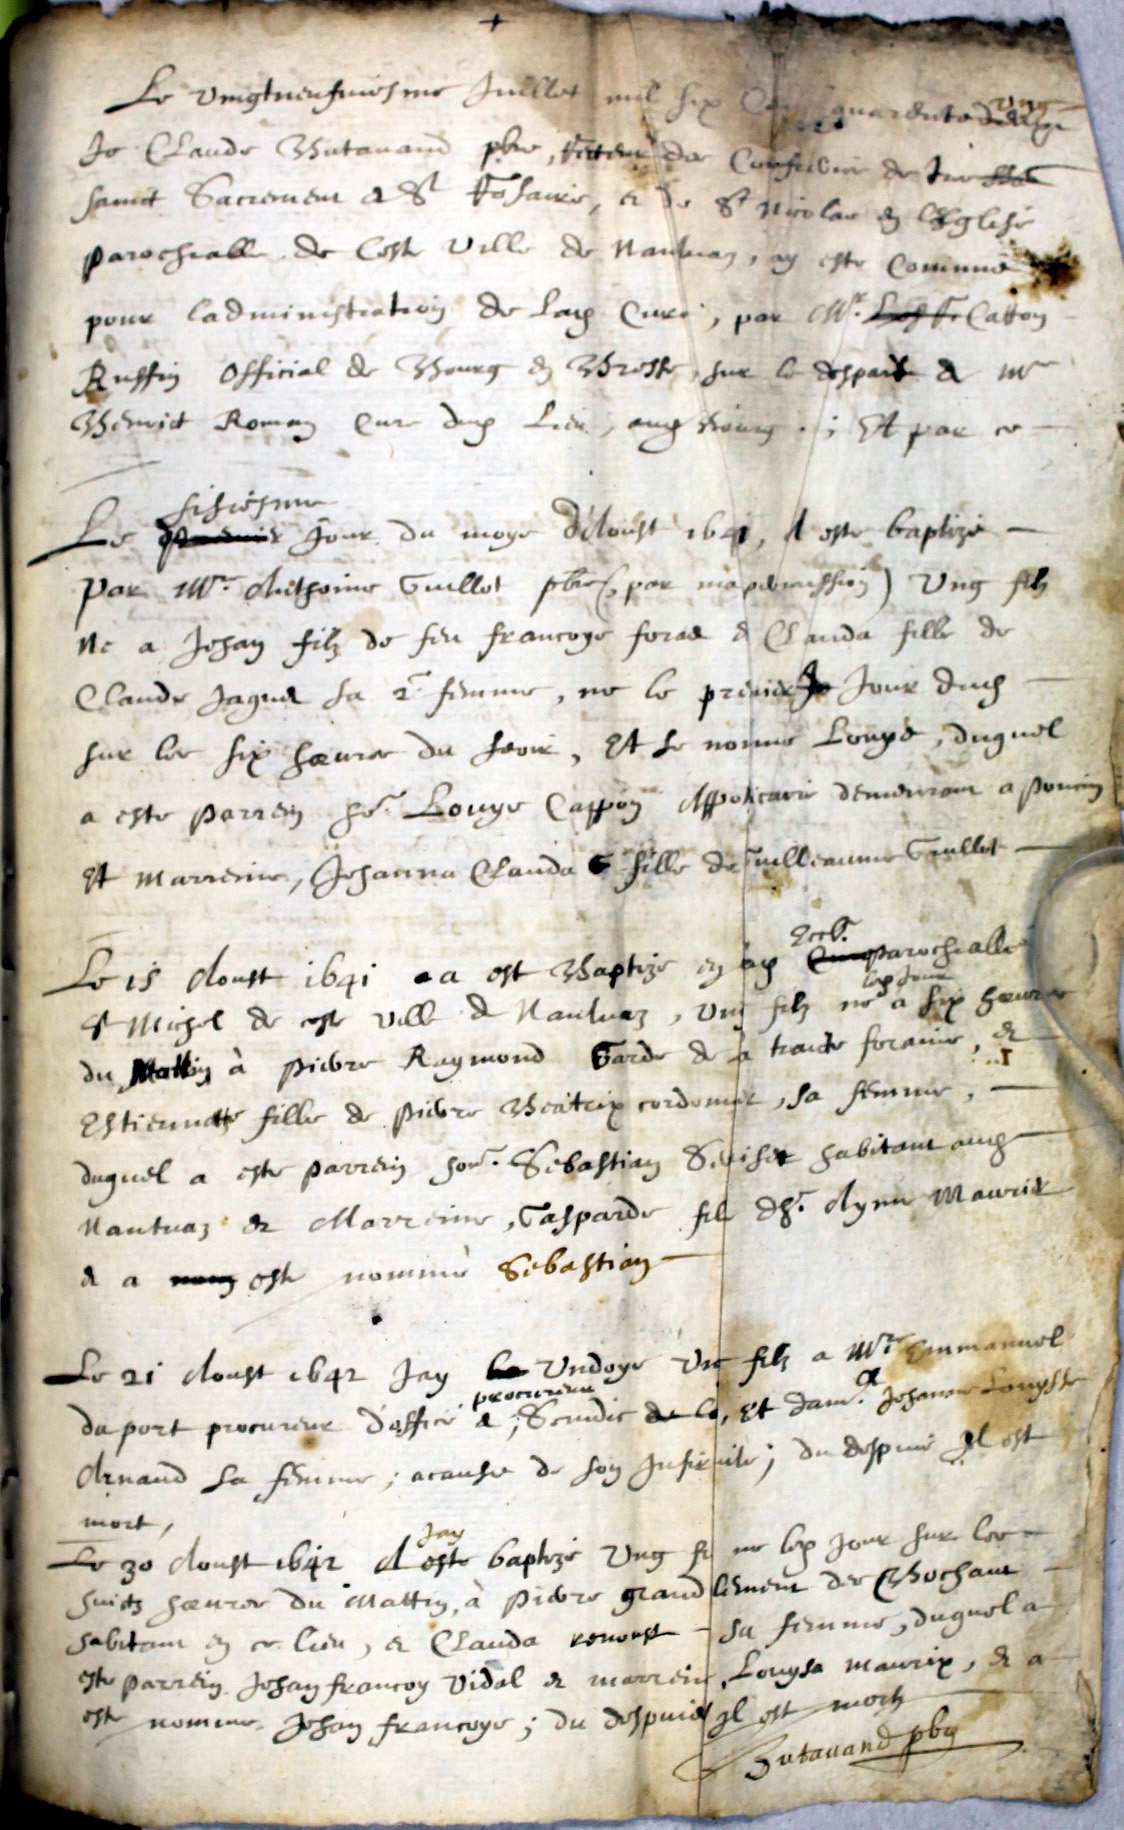 Le vingtneufviesme Juillet mil six Cent quarente ung
Je Claude Butavand pbre, de Confrerie de
sainct Sacrement & St Rosaire, et de St Nicolas en l'Eglise
parochialle de Ceste Ville de Nantuaz, ay este Commis
pour ladministration de Cure, par Mr. Catton
Ruffin Official de Bourg en Bresse, sur le despart de Mre
Benoict Roman Cure dud Lieu, aud Bourg ; Et par ce
sisiesme
Le Jour du moys d'Aoust 1641, A este baptizé
Par Mre. Anthoine Guillot pbre (par ma permission) Ung filz
Ne a Jehan filz de feu francoys foras & Clauda fille de
Claude Jaguet sa 2e femme, ne le premier Jour dud
sur les six heures du soir, Et se nomme Louys, duquel
a este Parrein hr. Louys Cappon Appoticaire demeurant a Poncin
Et Marreine, Jehanna Clauda fille de Guilleaume Guillot
Eccl.
Le 15 Aoust 1641 a est Baptize en parochialle
led Jour
St Michel de ceste ville de Nantuaz, Ung filz ne a six heures
du Mattin à Pierre Raymond Garde de la traicte foraine, et
Estiennette fille de Pierre Beatrix cordonnier, sa femme,
duquel a este parrein hor. Sebastian habitant aud
Nantuaz et Marreine, Gasparde fille Aymé Maurix
& a este nommé Sebastian
Le 21 Aoust 1642 Jay Undoye Un filz a Mre Emmanuel
procureur
duport procureur d'office & Scindic, Et dam. Jehanne Louysse
Arnaud sa femme, a cause de son Infirmité; du despuis Il est
mort,
Jay
Le 30 Aoust 1642 A este baptizé Ung fi ne led Jour sur les
huict heures du Mattin, à Pierre grandclement de Bochant
habitant en ce lieu, et Clauda sa femme, duquel a
este Parrein Jehan francoy Vidal et marreine Louysa Maurix, et a
este nomme Jehan francoys; du despuis Il est mort
Butavand pbre